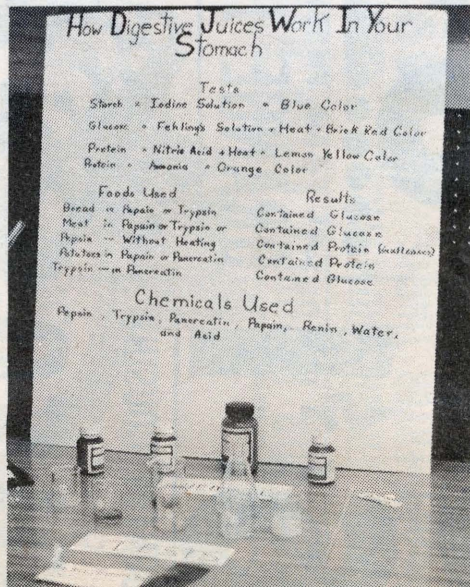 How Digestive Juices Work In Your
Stomach
Tests
Starch + Iodine Solution = Blue Color
Glucose + Fehling's Solution + Heat = Brick Red Color
Protein + Nitric Acid + Heat = Lemon Yellow Color
Protein + Ammonia = Orange Color
Foods Used
Bread in Papain or Trypsin
Meat in Papain or Trypsin or
Pepsin -- Without Heating
Potatoes in Papain or Pancreatin
Trypsin -- in Pancreatin
Results
Contained Glucose
Contained Glucose
Contained Protein
Contained Protein
Contained Glucose
Chemicals Used
Pepsin, Trypsin, Pancreatin, Papain, Renin, Water,
and Acid
TESTS